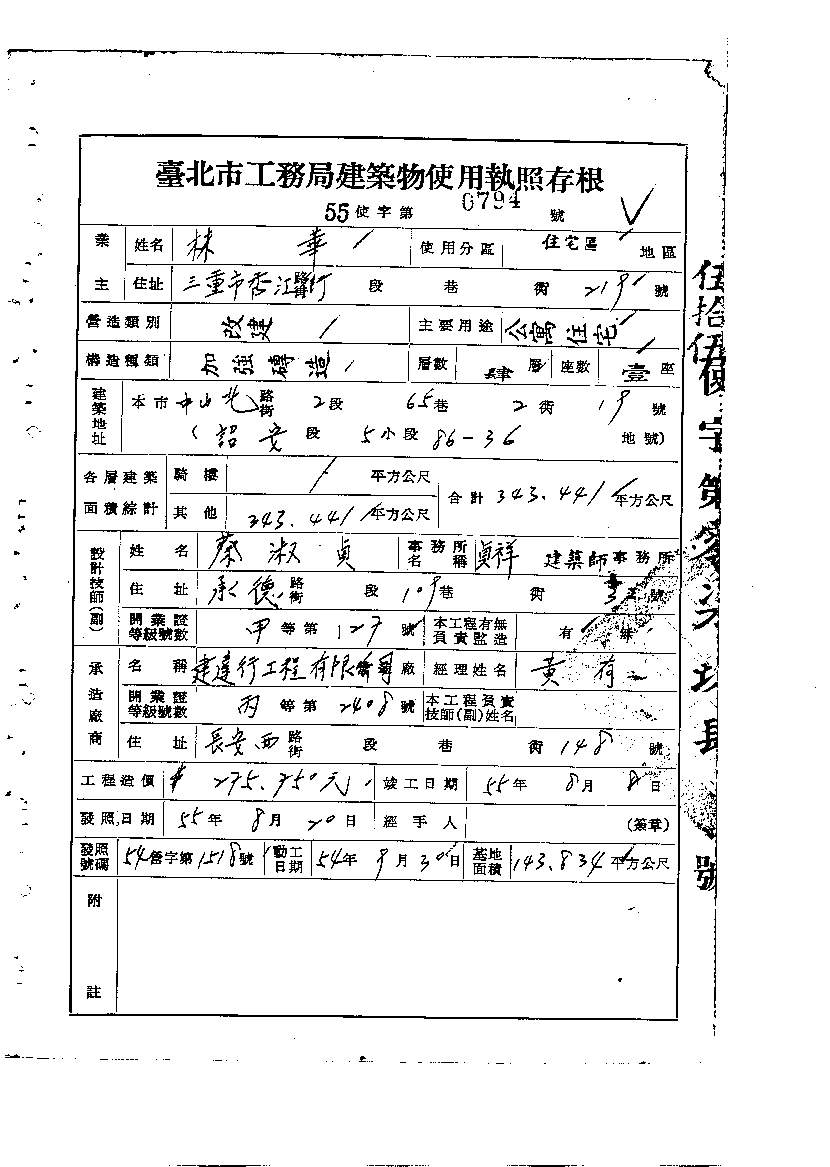 臺北市工務局建築物使用執照存根
55使字第 0794 號
業主 姓名 林華 使用分區 住宅區 地區
住址 三重市 段 巷 街 219 號
營造類別 改建 主要用途 公寓住宅
構造種類 加強磚造 層數 肆層 座數 壹座
建築地址 本市 中山北 路街 2段 65巷 2街 19 號
(詔安段 5小段 86-36 地號)
各層建築面積綜計 騎樓 平方公尺 合計 343.441 平方公尺
其他 343.441 平方公尺
設計技師(副) 姓名 蔡淑貞 事務所名稱 貞祥 建築師事務所
住址 承德 路街 段 109巷 街 號
開業證等級號數 甲等第 127 號 本工程有無負責監造 有 無
承造廠商 名稱 建達行工程有限公司 廠 經理姓名 黃有
開業證等級號數 丙等第 2408 號 本工程負責技師(副)姓名
住址 長安西 路街 段 巷 街 148 號
工程造價 275.750元 竣工日期 55年 8月 8日
發照日期 55年 8月 20日 經手人 (簽章)
發照號碼 54營字第1518號 動工日期 54年 9月 30日 基地面積 143.834 平方公尺
附註
伍拾伍使字第零柒 號